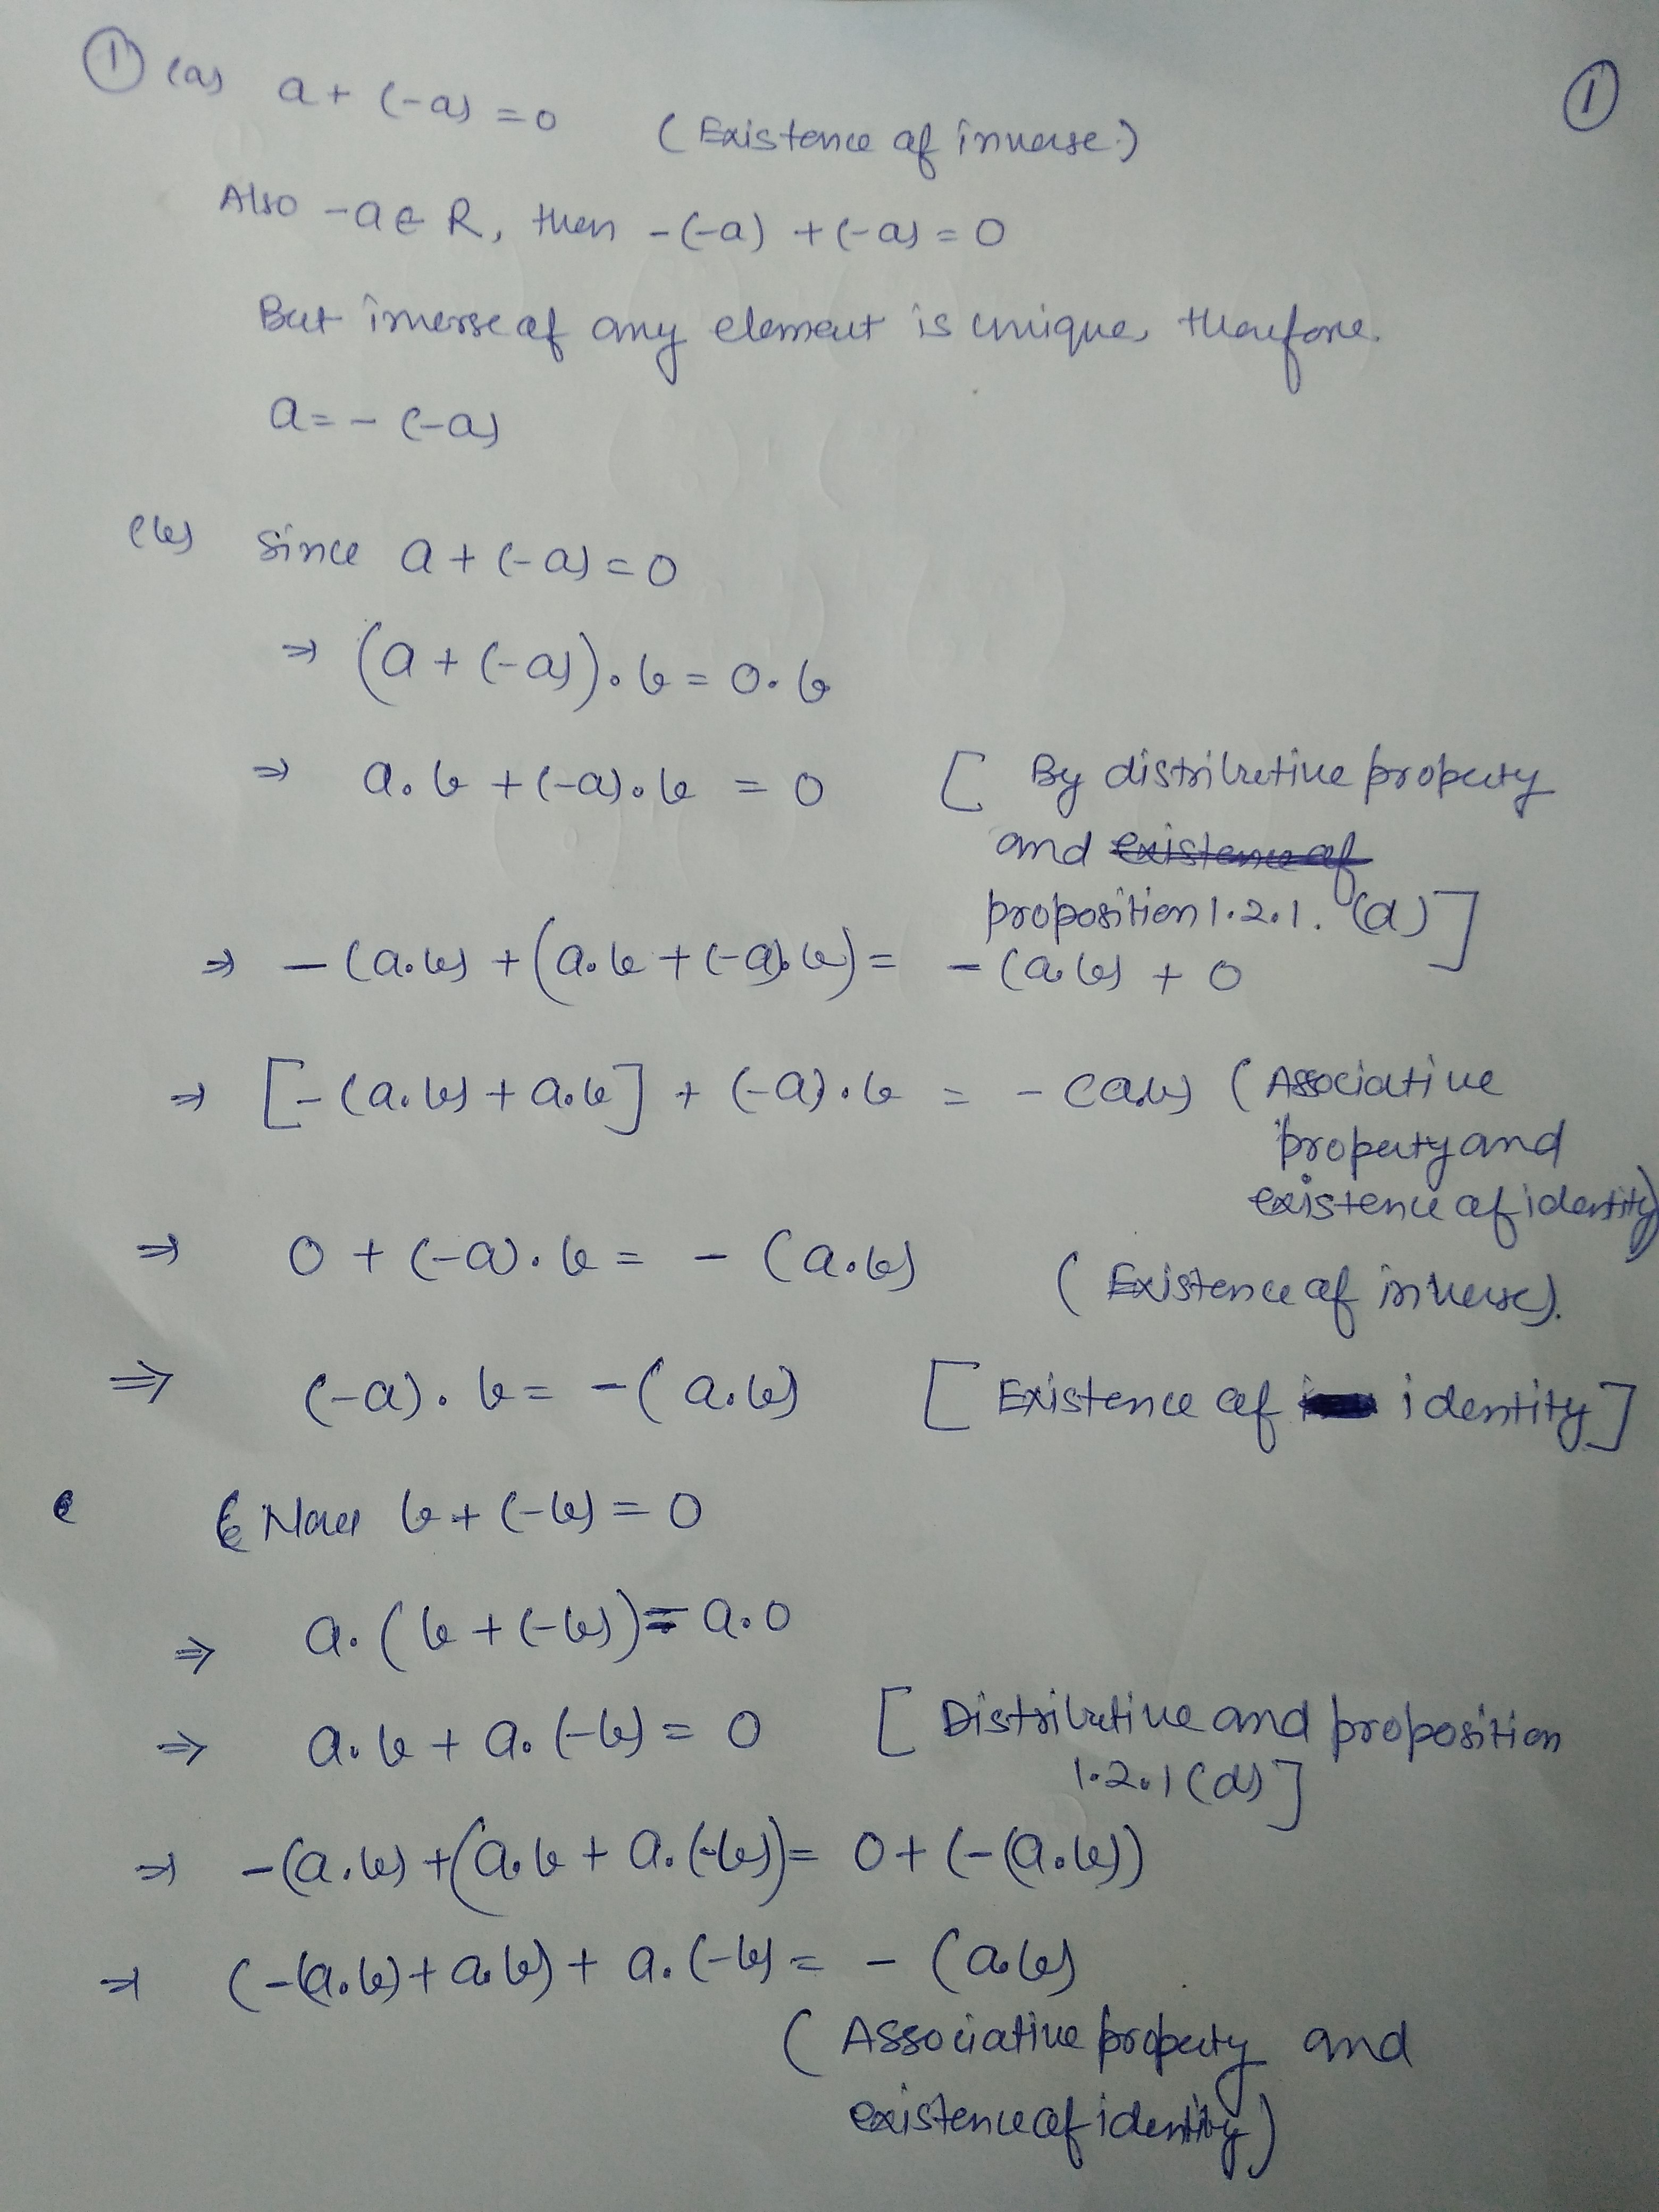 ① (a) a + (-a) = 0 (Existence of inverse.) ①
Also -a ∈ R, then -(-a) + (-a) = 0
But inverse of any element is unique, therefore.
a = - (-a)
(b) Since a + (-a) = 0
⇒ (a + (-a)). b = 0. b
⇒ a. b + (-a). b = 0 [ By distributive property
and existence of
proposition 1.2.1. (d) ]
⇒ - (a.b) + (a. b + (-a). b) = - (a. b) + 0
⇒ [- (a.b) + a.b] + (-a). b = - (a.b) ( Associative
property and
existence of identity)
⇒ 0 + (-a). b = - (a.b) ( Existence of inverse).
⇒ (-a). b = - ( a.b) [ Existence of identity]
Now b + (-b) = 0
⇒ a. ( b + (-b)) = a.0
⇒ a. b + a. (-b) = 0 [ Distributive and proposition
1.2.1 (d) ]
⇒ -(a.b) + (a.b + a. (-b)) = 0 + (-(a.b))
⇒ (-(a.b) + a.b) + a. (-b) = - (a.b)
( Associative property and
existence of identity)